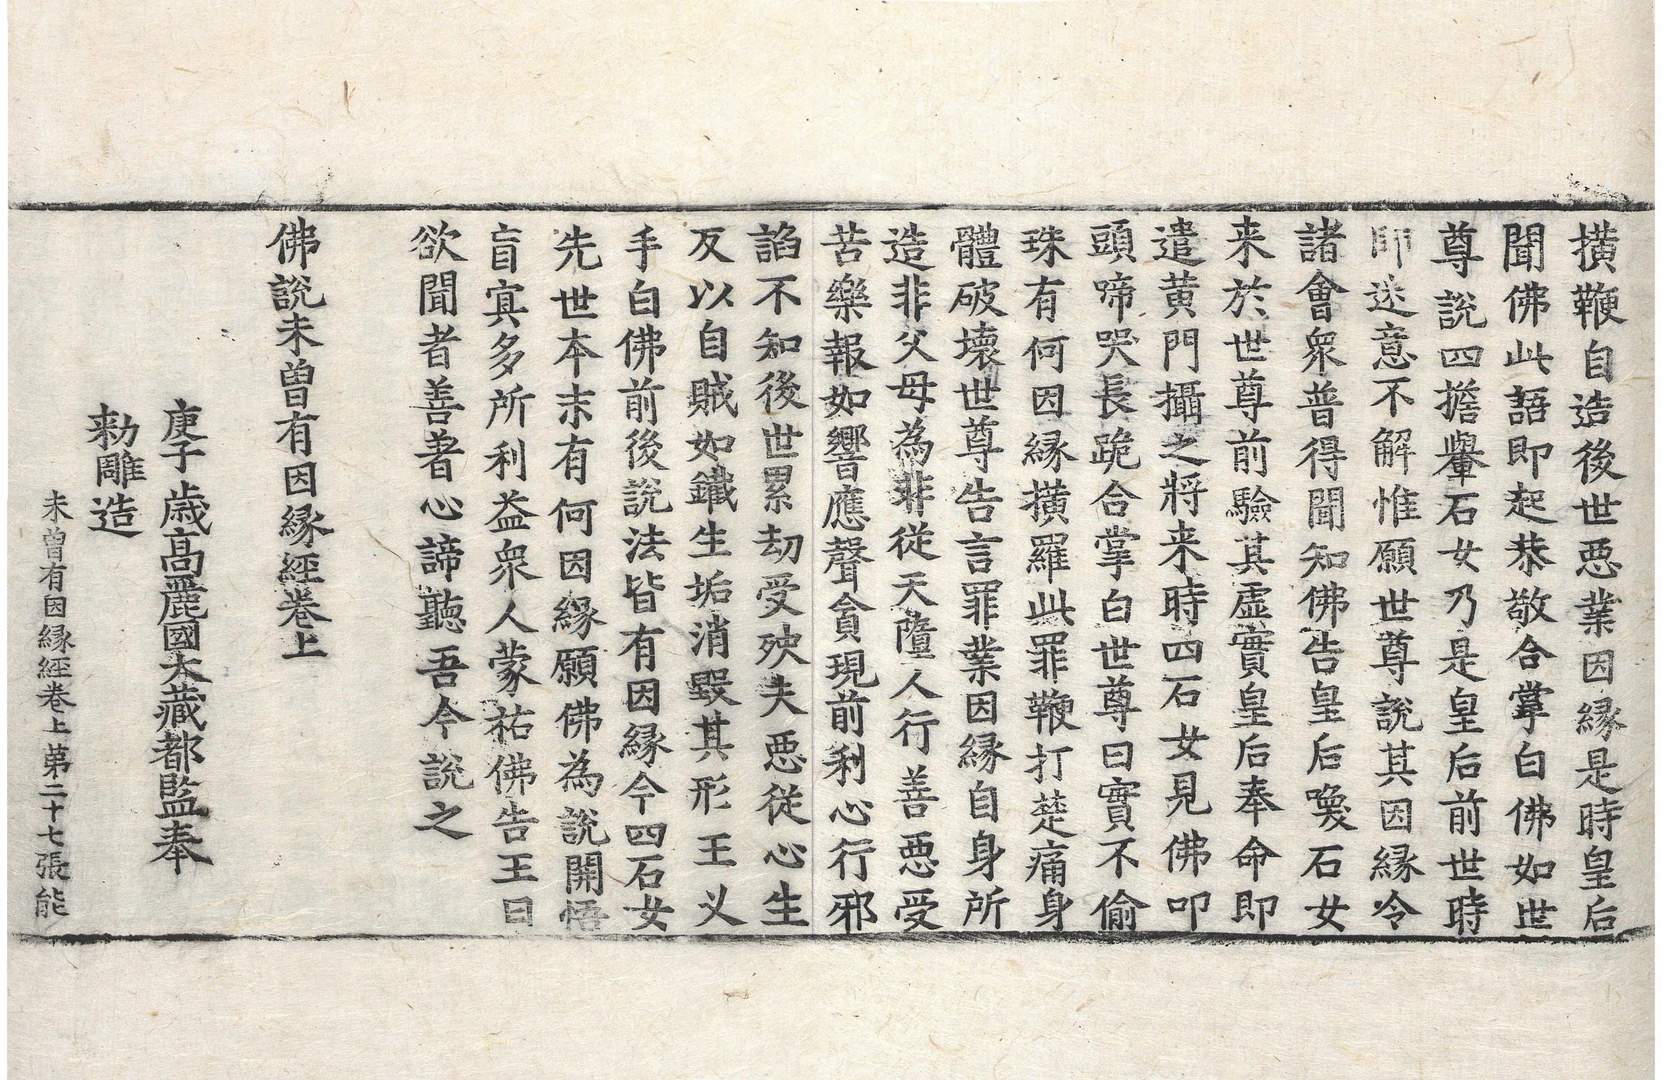 撗鞭自造後世惡業因縁是時皇后
聞佛此語即起恭敬合掌白佛如世
尊說四擔轝石女乃是皇后前世時
師迷意不解惟願世尊說其因縁令
諸會衆普得聞知佛告皇后喚石女
来於世尊前驗其虛實皇后奉命即
遣黄門攝之將来時四石女見佛叩
頭啼哭長跪合掌白世尊曰實不偷
珠有何因縁撗羅此罪鞭打楚痛身
體破壞世尊告言罪業因縁自身所
造非父母為非從天墮人行善惡受
苦樂報如響應聲貪現前利心行邪
諂不知後世累劫受殃夫惡從心生
反以自賊如鐵生垢消毀其形王义
手白佛前後說法皆有因縁今四石女
先世本末有何因縁願佛為說開悟
盲冥多所利益衆人蒙祐佛告王曰
欲聞者善著心諦聽吾今說之
佛說未曽有因縁經卷上
庚子歳髙麗國大藏都監奉
勑雕造
未曽有因縁經卷上 第二十七張 能